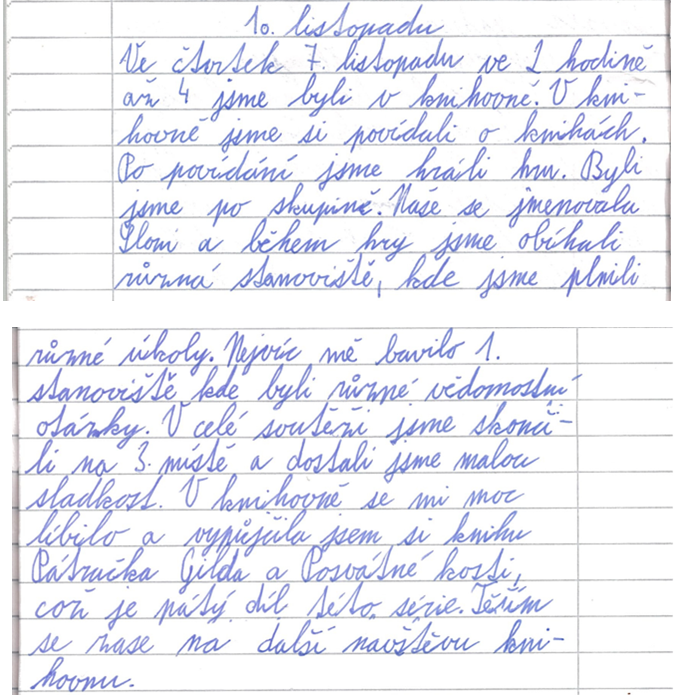 10. listopadu
Ve čtvrtek 7. listopadu ve 2 hodině
až 4 jsme byli v knihovně. V kni-
hovně jsme si povídali o knihách.
Po povídání jsme hráli hru. Byli
jsme po skupině. Naše se jmenovala
Sloni a během hry jsme obíhali
různá stanoviště, kde jsme plnili
různé úkoly. Nejvíc mě bavilo 1.
stanoviště kde byli různé vědomostní
otázky. V celé soutěži jsme skonči-
li na 3. místě a dostali jsme malou
sladkost. V knihovně se mi moc
líbilo a vypůjčila jsem si knihu
Pátračka Gilda a Posvátné kosti,
což je pátý díl této série. Těším
se zase na další navštěvu kni-
hovnu.